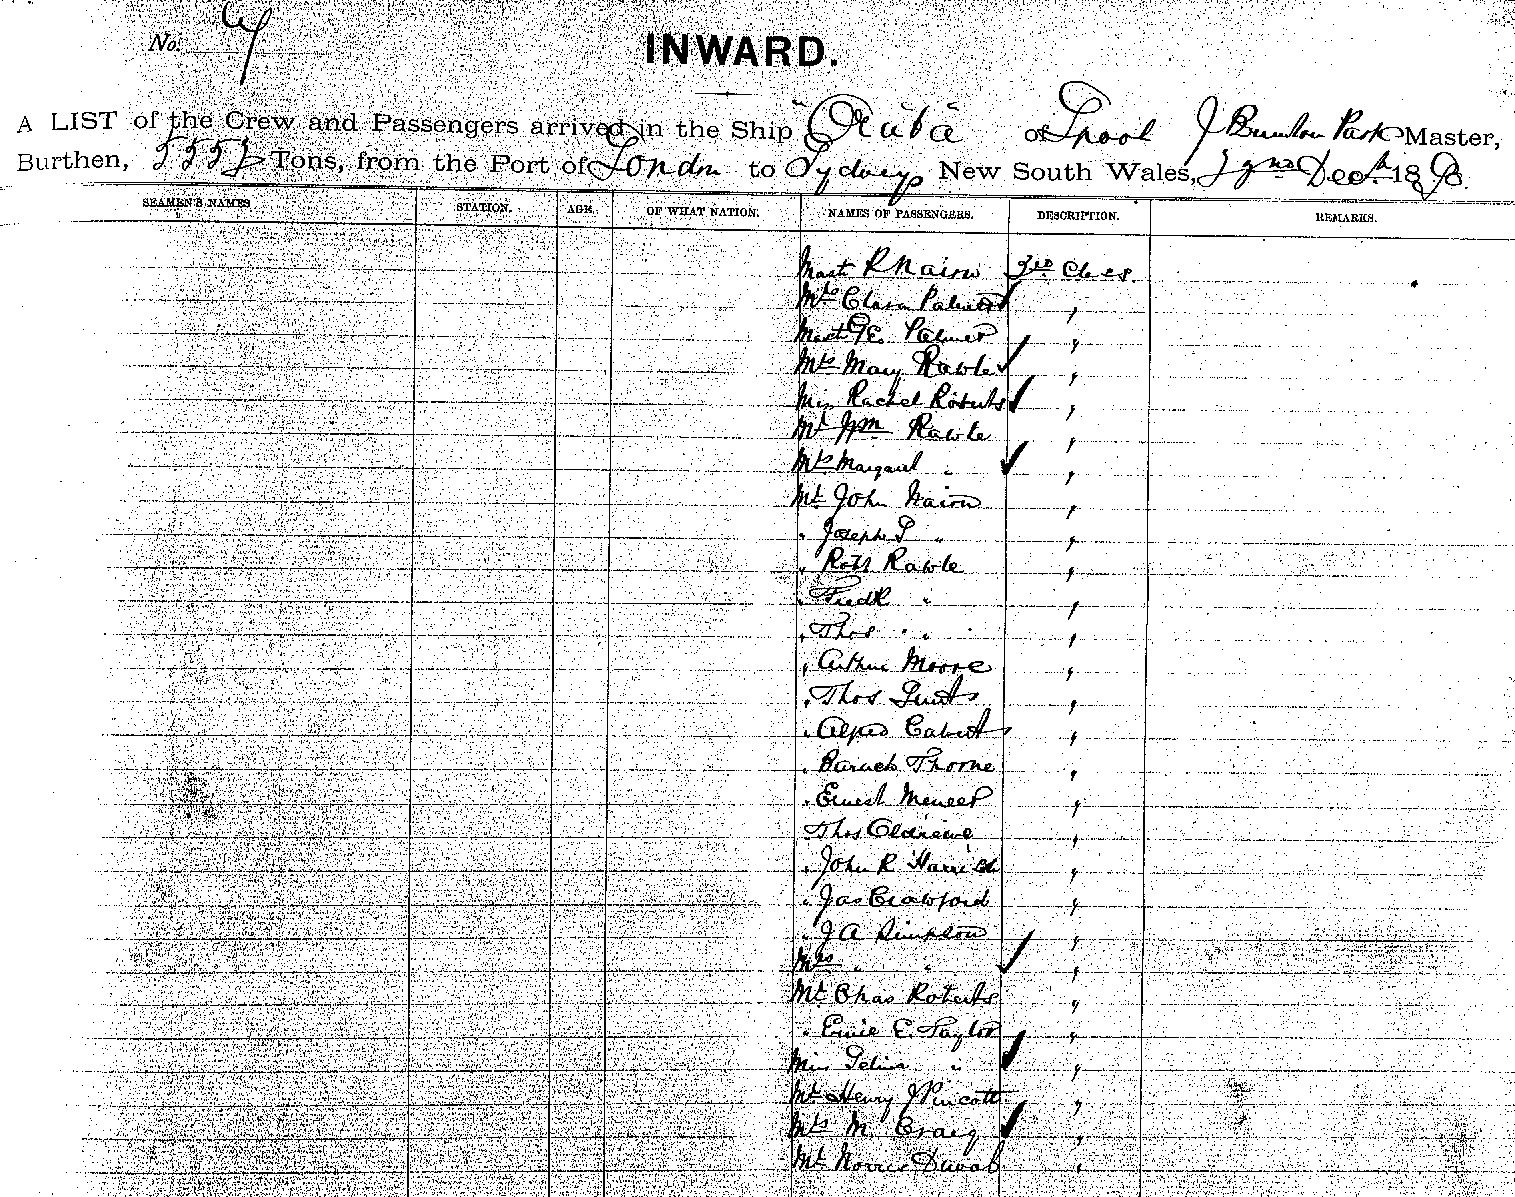 No. 4
INWARD.
A LIST of the Crew and Passengers arrived in the Ship "Oruba" of Lpool J Park Master,
Burthen, 5552 Tons, from the Port of London to Sydney New South Wales, Decr 1898.
SEAMEN'S NAMES STATION. AGE. OF WHAT NATION. NAMES OF PASSENGERS. DESCRIPTION. REMARKS.
Mast R Nairn 3rd Class.
Mrs Clara Palmer "
Mast G E. Palmer "
Mrs Mary Rawle "
Miss Rachel Roberts "
Mr Wm Rawle "
Mrs Margaret " "
Mr John Nairn "
" Joseph S " "
" Robt Rawle "
" Fredk " "
" Thos " "
" Arthur Moore "
" Thos "
" Alfred Calvert "
" Baruch Thorne "
" Ernest Meneer "
Thos "
" John R "
" Jas Crawford "
" J A Simpson "
Mrs " " "
Mr Chas Roberts "
" Ernie E. Taylor "
Miss " "
Mr Henry J Pincott "
Mrs M. Craig "
Mr "